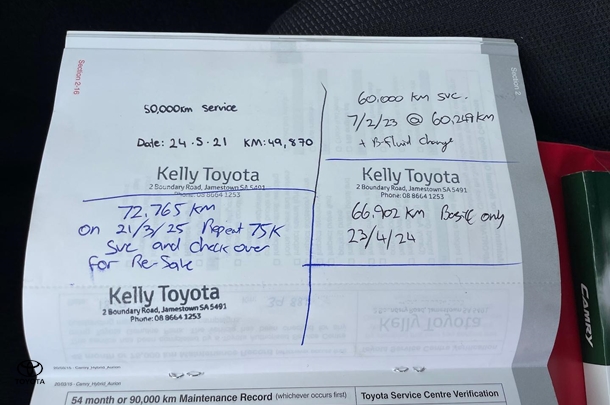 Section 2-16
50,000km service
Date: 24.5.21 KM: 49,870
Kelly Toyota
2 Boundary Road, Jamestown SA 5491
Phone: 08 8664 1253
72,765 km
on 21/3/25 Repeat 75K
SVC and check over
for Re-Sale
Kelly Toyota
2 Boundary Road, Jamestown SA 5491
Phone: 08 8664 1253
Section 2
60,000 km SVC.
7/2/23 @ 60,247km
+ B-Fluid Change
Kelly Toyota
2 Boundary Road, Jamestown SA 5491
Phone: 08 8664 1253
66,902 km only
23/4/24
Kelly Toyota
CAMRY
TOYOTA
54 month or 90,000 km Maintenance Record (whichever occurs first)
Toyota Service Centre Verification